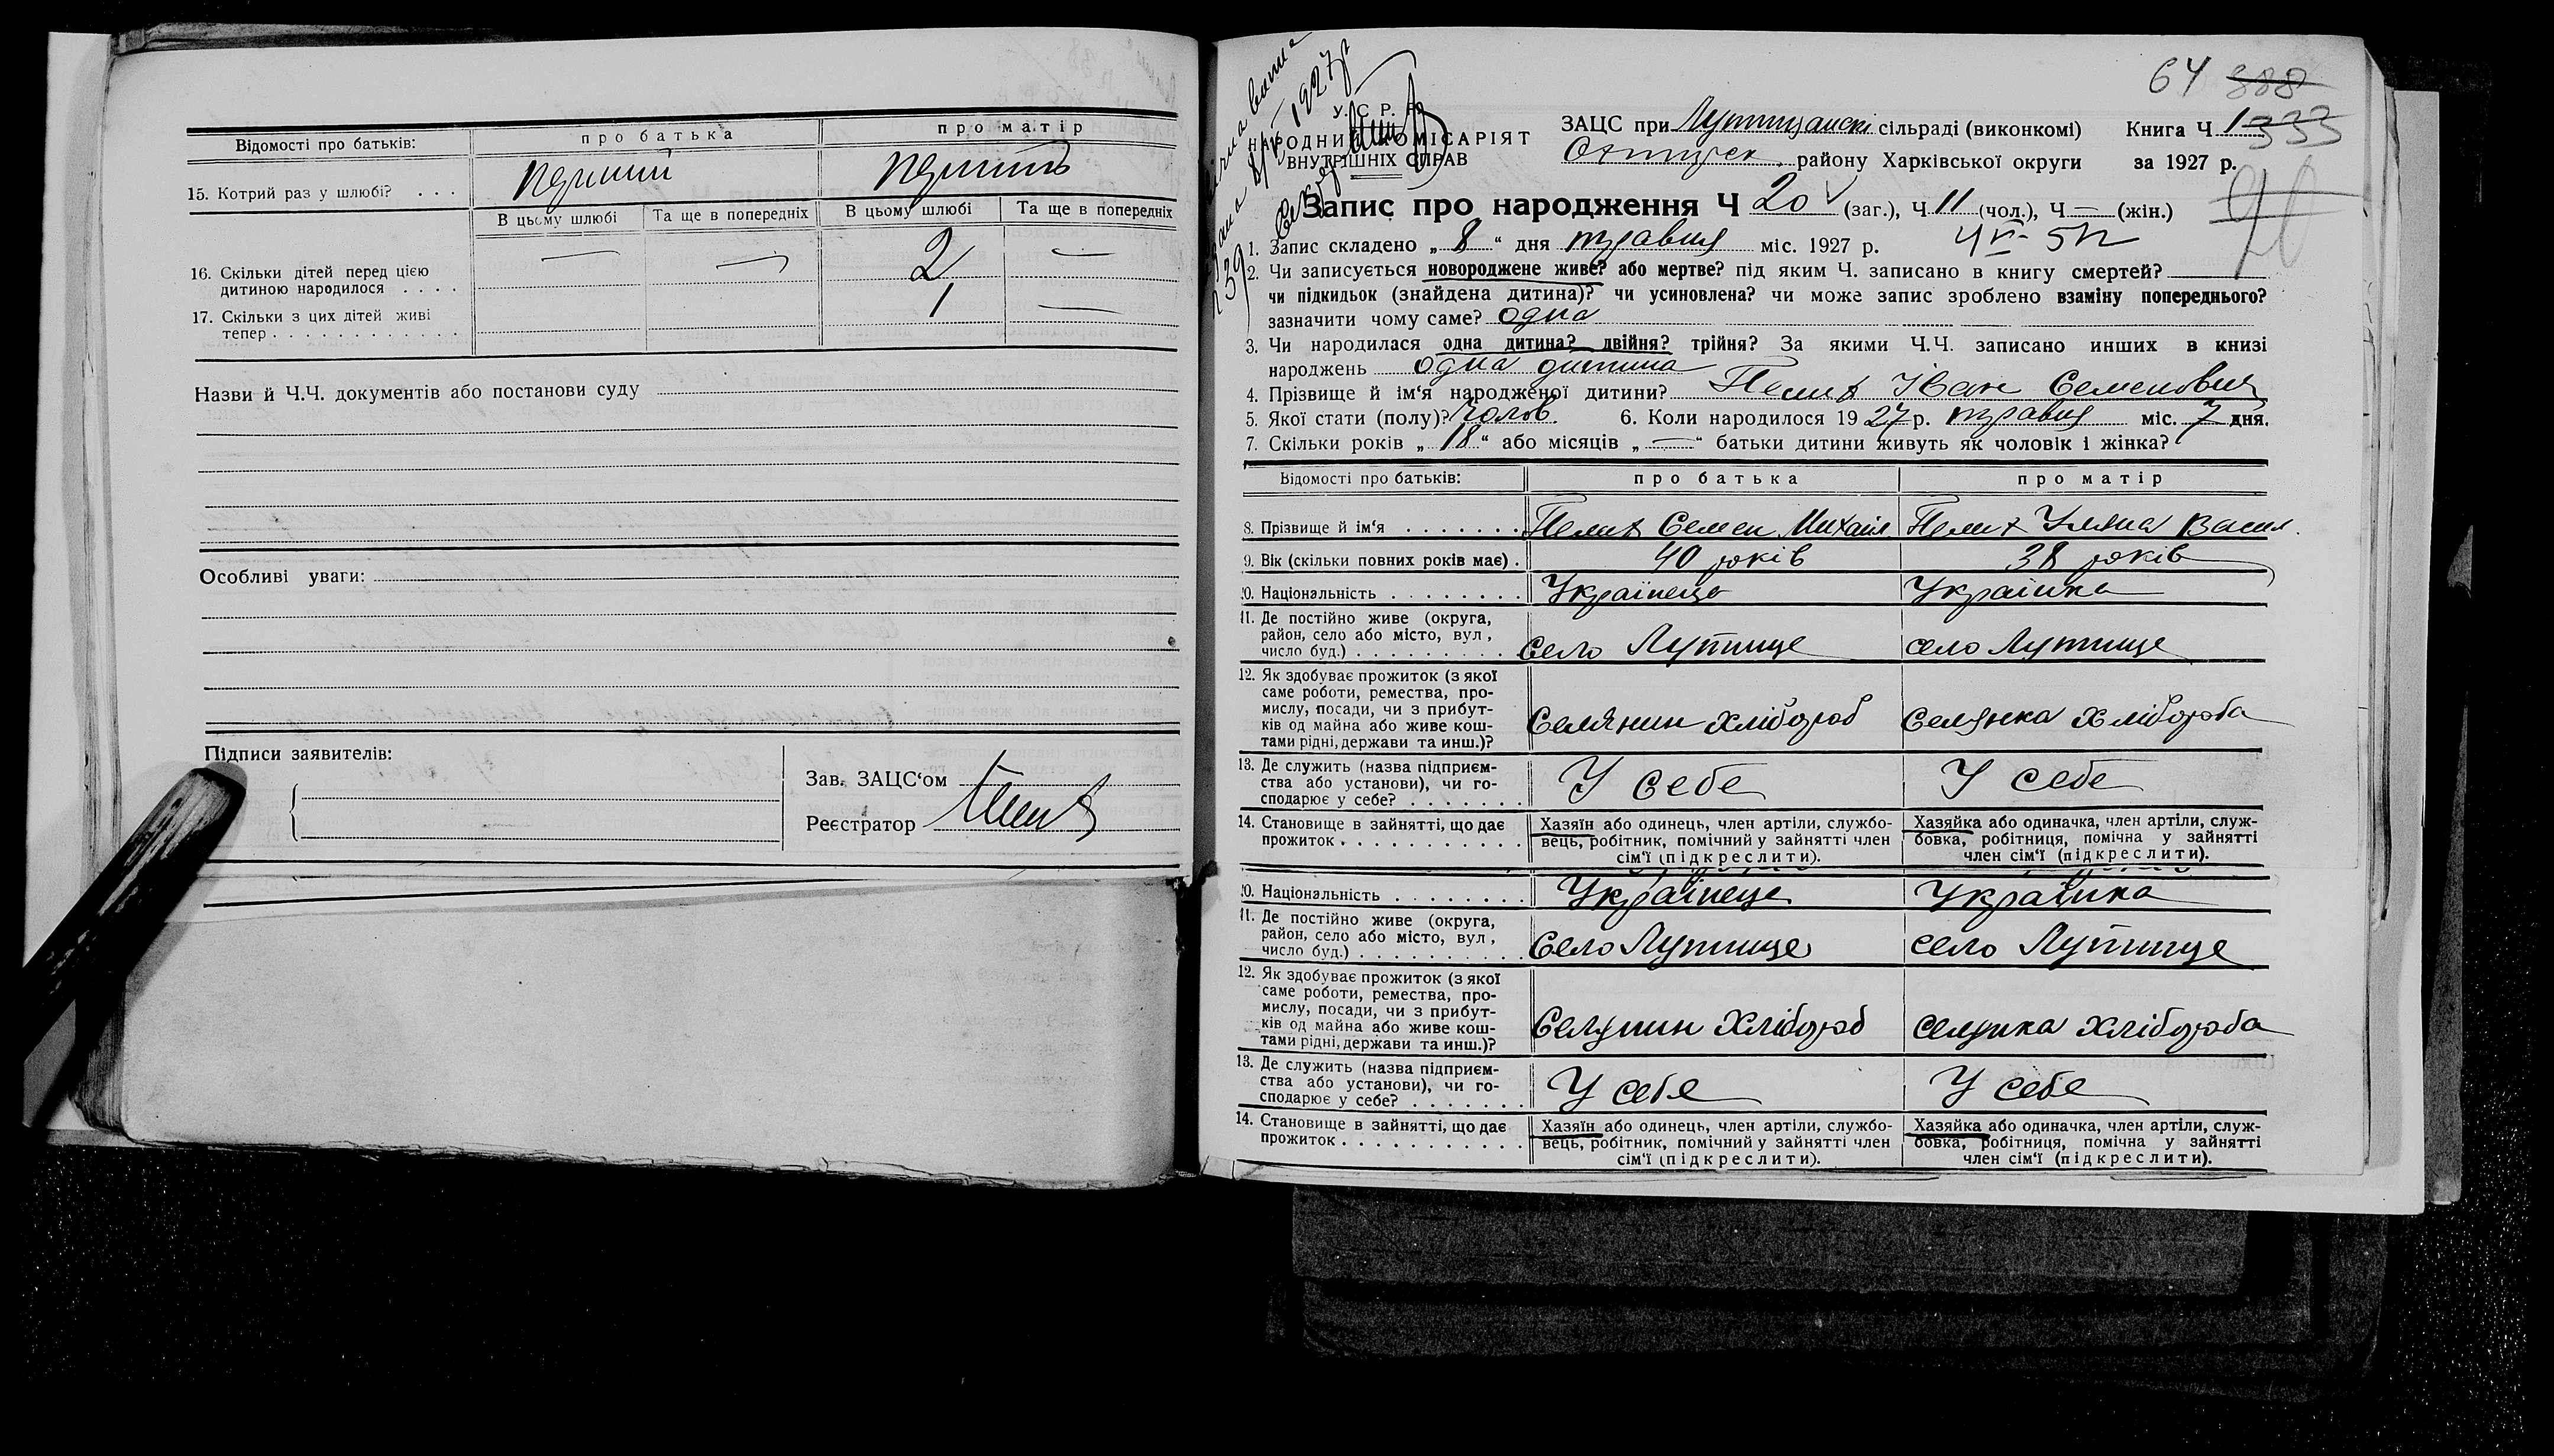 Відомості про батьків: про батька про матір
15. Котрий раз у шлюбі? . . . перший
В цьому шлюбі Та ще в попередніх В цьому шлюбі Та ще в попередніх
16. Скільки дітей перед цією
дитиною народилося . . . . — — 2 —
17. Скільки з цих дітей живі
тепер . . . . . . . . . . . . 1 —
Назви й Ч.Ч. документів або постанови суду
Особливі уваги:
Підписи заявителів:
Зав. ЗАЦС'ом
Реєстратор
64 388
333
1927р
У. С. Р. Р.
НАРОДНИЙ КОМІСАРІЯТ
ВНУТРІШНІХ СПРАВ
ЗАЦС при сільраді (виконкомі) Книга Ч 1
району Харківської округи за 1927 р.
Запис про народження Ч 20 (заг.), Ч 11 (чол.), Ч — (жін.)
1. Запис складено „ 8 “ дня травня міс. 1927 р.
2. Чи записується новороджене живе? або мертве? під яким Ч. записано в книгу смертей?
чи підкидьок (знайдена дитина)? чи усиновлена? чи може запис зроблено взаміну попереднього?
зазначити чому саме? одна
3. Чи народилася одна дитина? двійня? трійня? За якими Ч.Ч. записано инших в книзі
народжень одна дитина
4. Прізвище й ім'я народженої дитини? Іван Семенович
5. Якої стати (полу)? Чолов. 6. Коли народилося 1927 р. травня міс. 7 дня.
7. Скільки років „ 18 “ або місяців „ — “ батьки дитини живуть як чоловік і жінка?
Відомості про батьків: про батька про матір
8. Прізвище й ім'я . . . . . . . Семен Михайл Уляна Васил.
9. Вік (скільки повних років має) . 40 років 38 років
10. Національність . . . . . . . . Українець Українка
11. Де постійно живе (округа,
район, село або місто, вул,
число буд.) . . . . . . . . . село Лутище село Лутище
12. Як здобуває прожиток (з якої
саме роботи, ремества, про-
мислу, посади, чи з прибут-
ків од майна або живе кош-
тами рідні, держави та инш.)? Селянин хлібороб Селянка хлібороба
13. Де служить (назва підприєм-
ства або установи), чи го-
сподарює у себе? . . . . . . . У себе У себе
14. Становище в зайнятті, що дає
прожиток . . . . . . . . . . .
Хазяїн або одинець, член артіли, службо-
вець, робітник, помічний у зайнятті член
сім'ї (підкреслити).
Хазяйка або одиначка, член артіли, служ-
бовка, робітниця, помічна у зайнятті
член сім'ї (підкреслити).
10. Національність . . . . . . . . Українець Українка
11. Де постійно живе (округа,
район, село або місто, вул,
число буд.) . . . . . . . . . . село Лутище село Лутище
12. Як здобуває прожиток (з якої
саме роботи, ремества, про-
мислу, посади, чи з прибут-
ків од майна або живе кош-
тами рідні, держави та инш.)? Селянин Хлібороб селянка хлібороба
13. Де служить (назва підприєм-
ства або установи), чи го-
сподарює у себе? . . . . . . . У себе У себе
14. Становище в зайнятті, що дає
прожиток . . . . . . . . . . .
Хазяїн або одинець, член артіли, службо-
вець, робітник, помічний у зайнятті член
сім'ї (підкреслити).
Хазяйка або одиначка, член артіли, служ-
бовка, робітниця, помічна у зайнятті
член сім'ї (підкреслити).